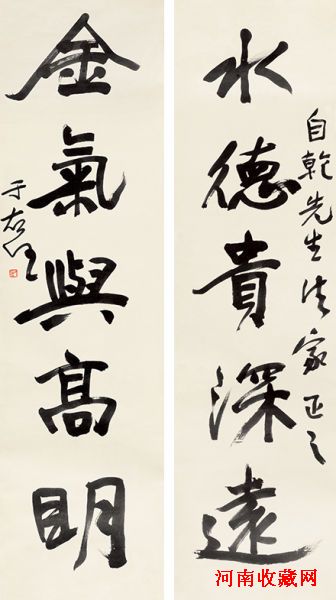 自乾先生法家正之
水德貴深遠
金氣與高明
于右任
河南收藏网